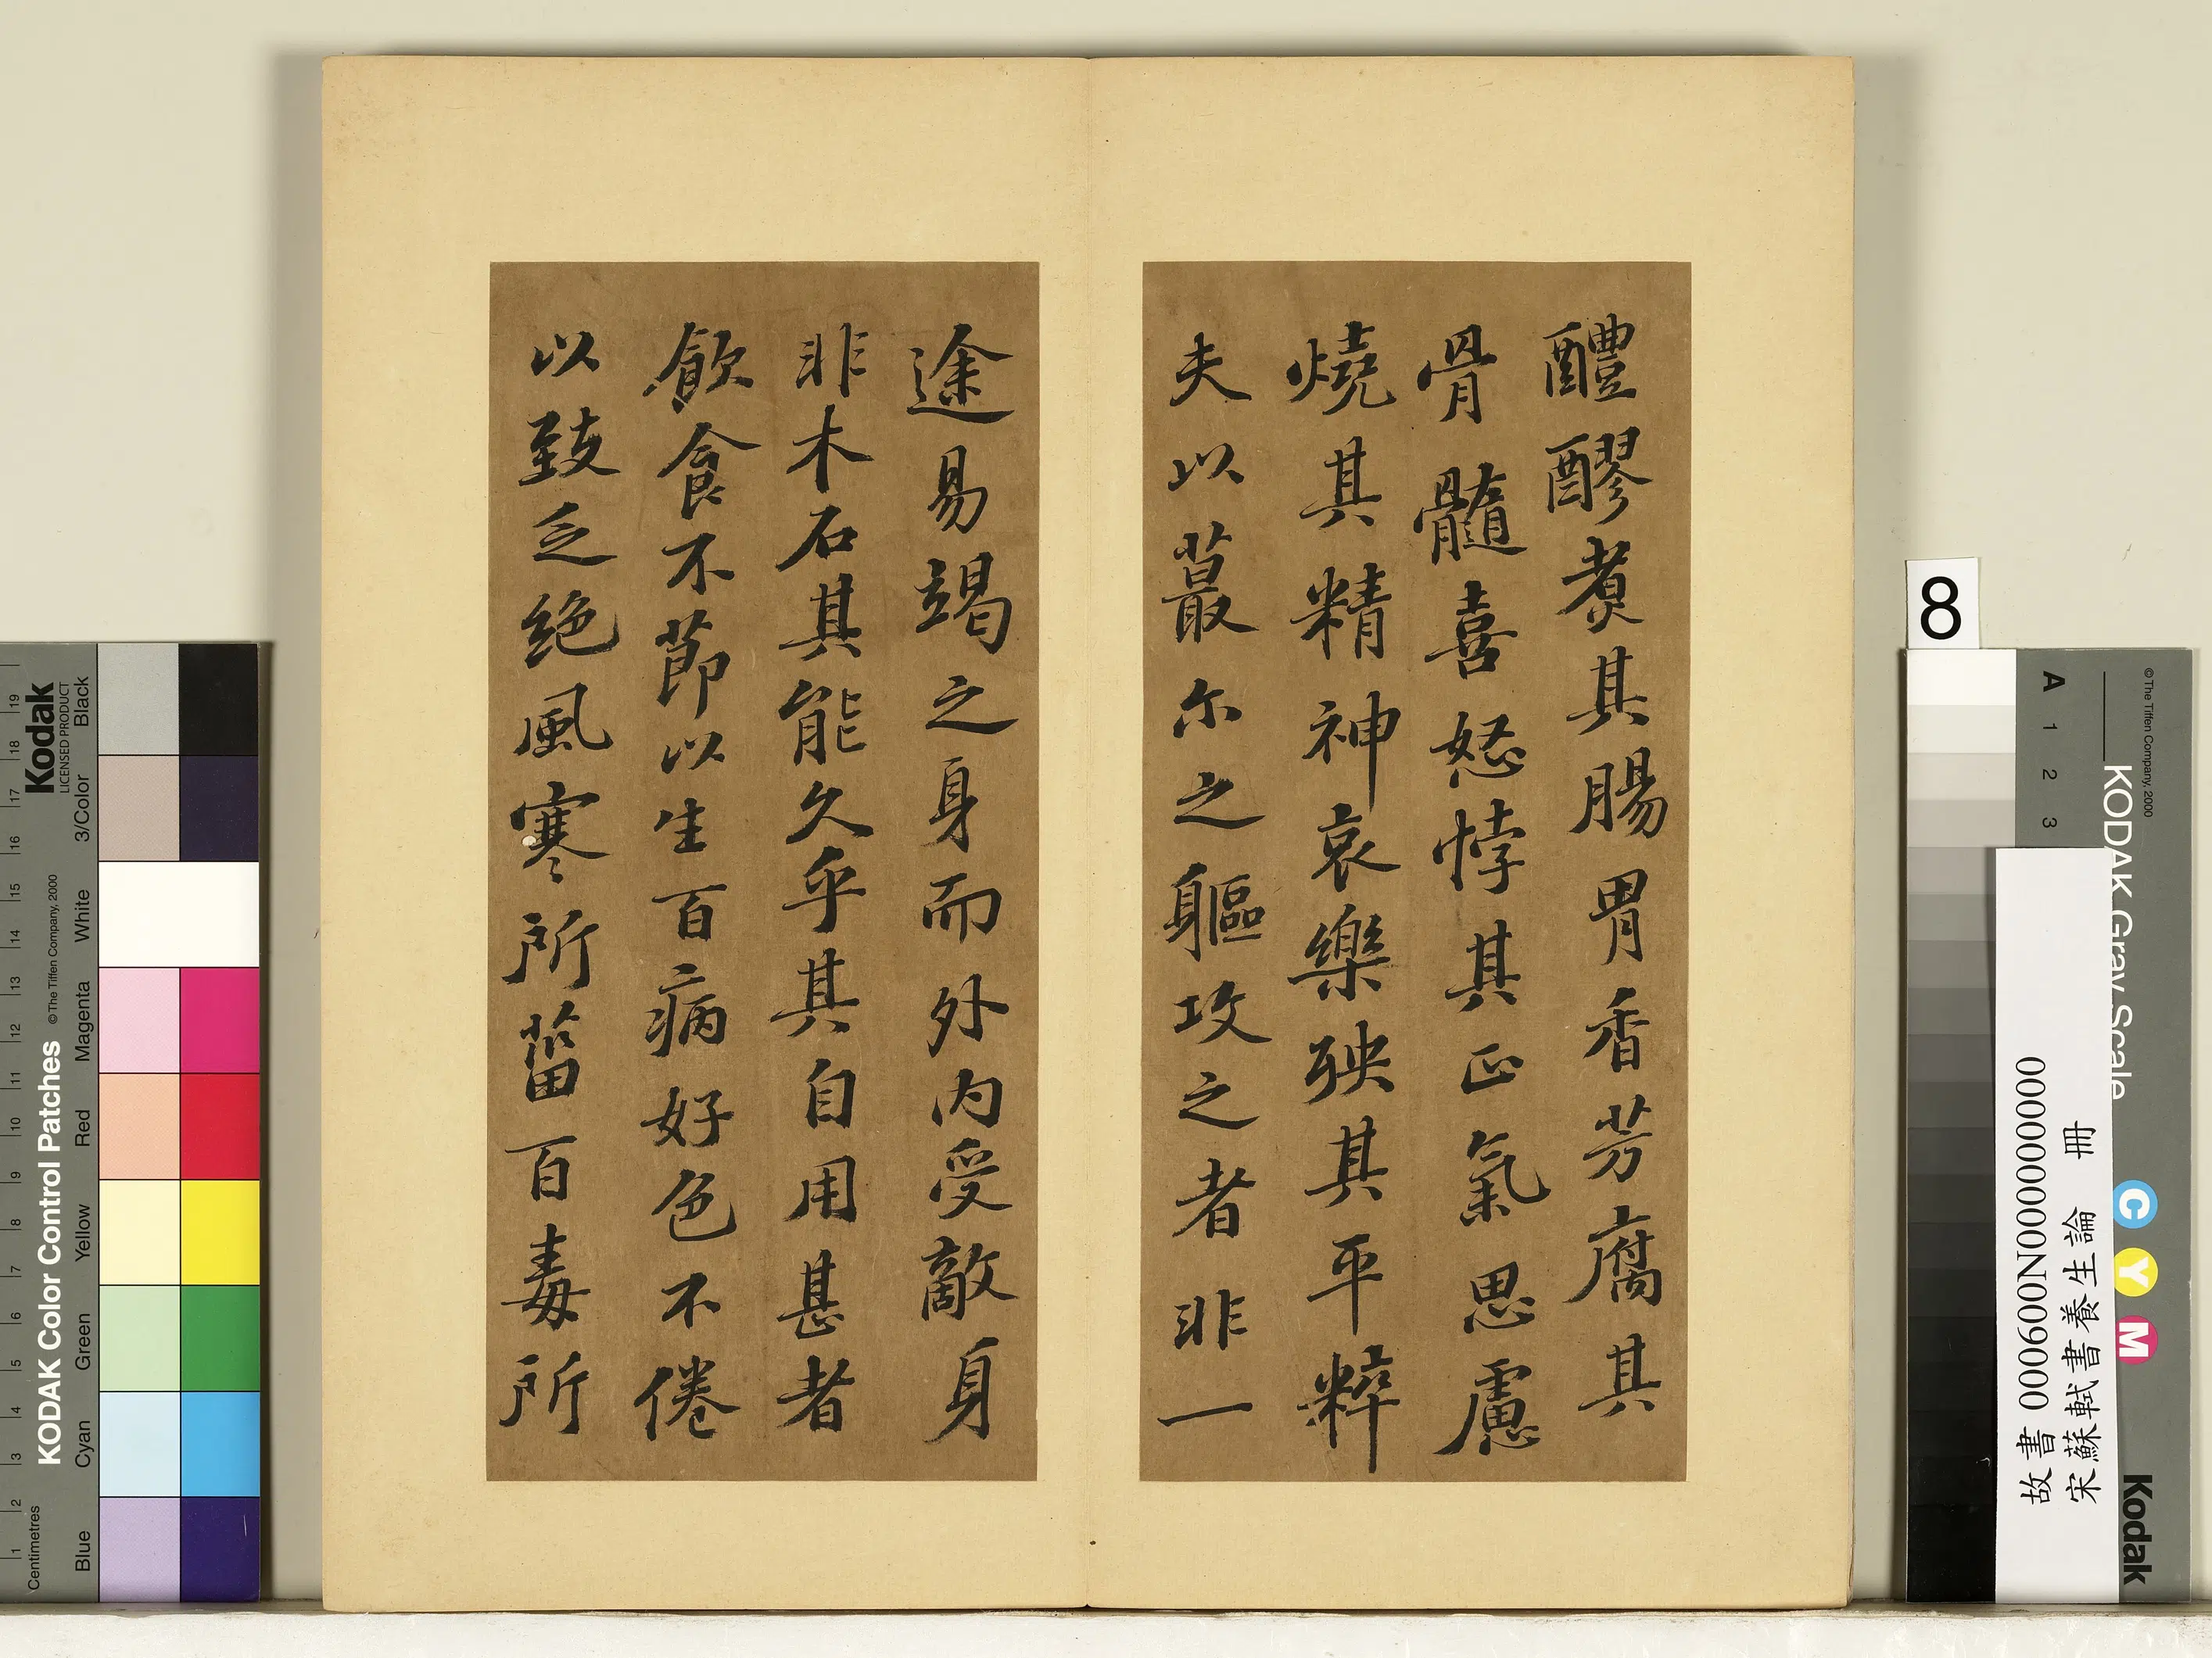 醴醪煮其腸胃香芳腐其
骨髓喜怒悖其正氣思慮
燒其精神哀樂殃其平粹
夫以蕞尔之軀攻之者非一
途易竭之身而外内受敵身
非木石其能久乎其自用甚者
飲食不節以生百病好色不倦
以致乏絶風寒所菑百毒所
8
KODAK Color Control Patches
© The Tiffen Company, 2000
Kodak
LICENSED PRODUCT
Centimetres
1 2 3 4 5 6 7 8 9 10 11 12 13 14 15 16 17 18 19
Blue Cyan Green Yellow Red Magenta White 3/Color Black
© The Tiffen Company, 2000
KODAK Gray Scale
A 1 2 3
C Y M
Kodak
故書 000600N000000000
宋蘇軾書養生論 冊